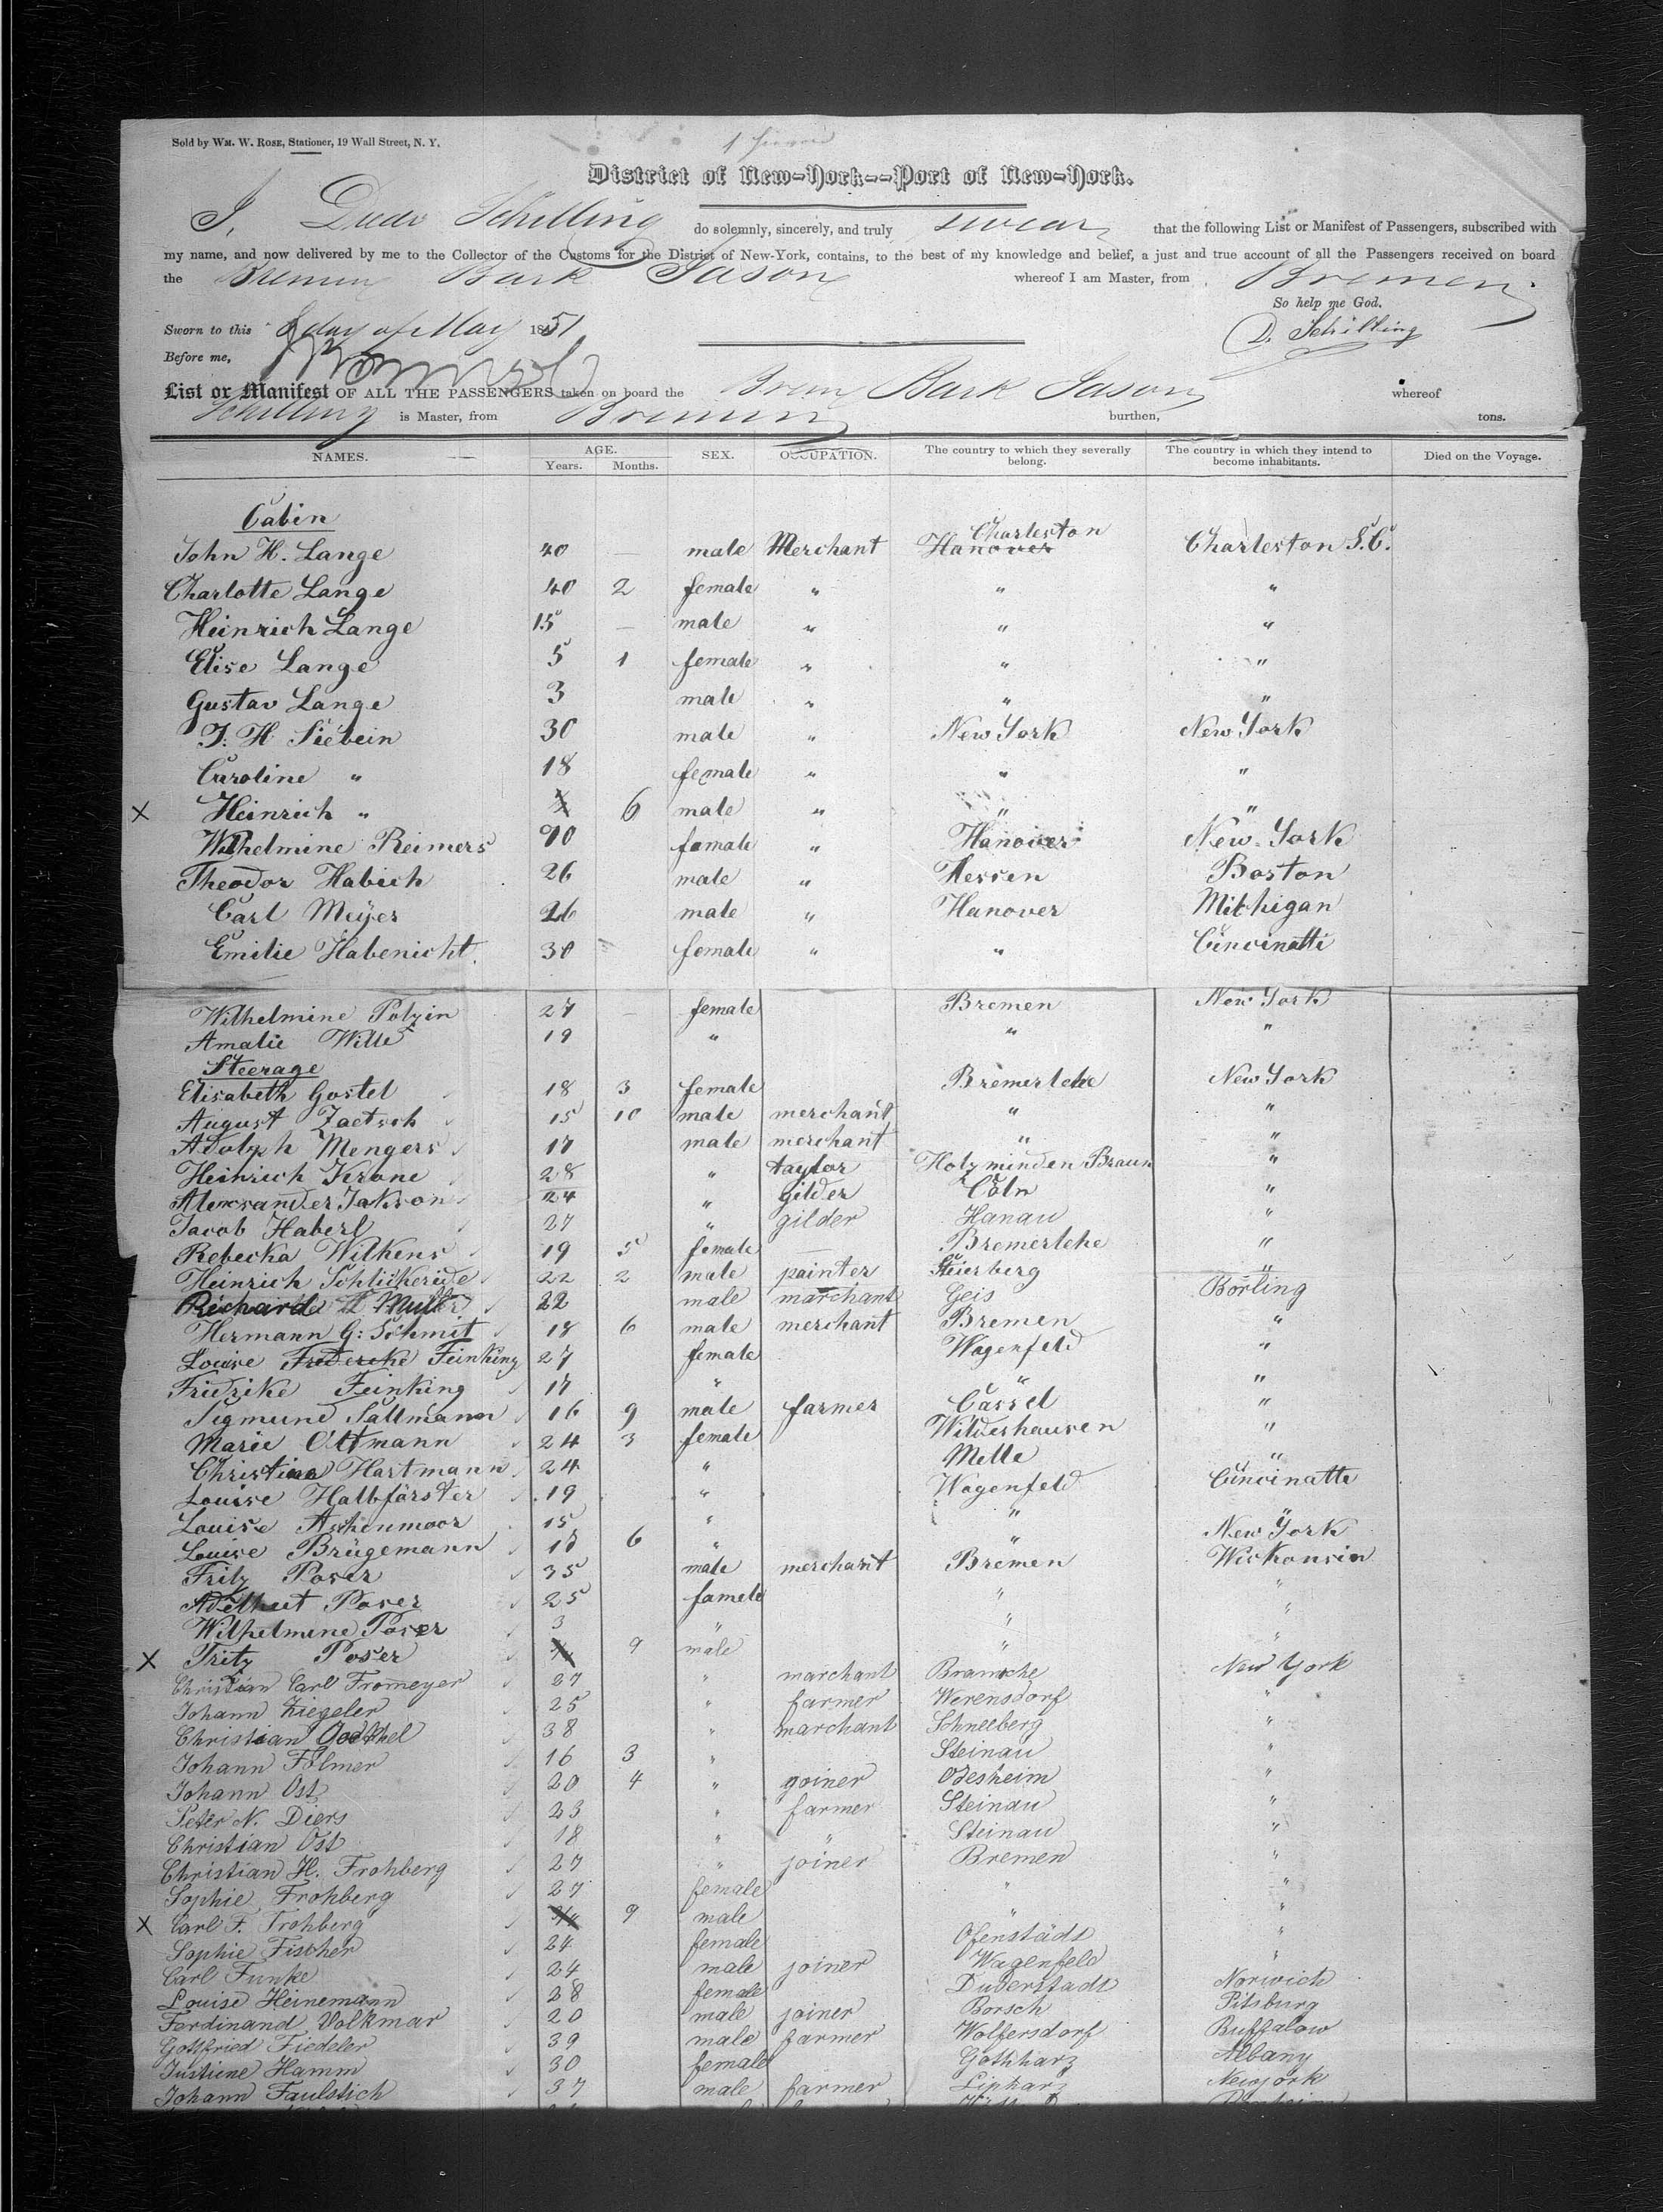 Sold by WM. W. ROSE, Stationer, 19 Wall Street, N. Y.
District of New-York--Port of New-York.
I, Schilling do solemnly, sincerely, and truly swear that the following List or Manifest of Passengers, subscribed with
my name, and now delivered by me to the Collector of the Customs for the District of New-York, contains, to the best of my knowledge and belief, a just and true account of all the Passengers received on board
the Bremen Bark Jason whereof I am Master, from Bremen
So help me God.
Sworn to this 8 day of May 1851 D. Schilling
Before me,
List or Manifest OF ALL THE PASSENGERS taken on board the Brem Bark Jason whereof
Schilling is Master, from Bremen burthen, tons.
NAMES. AGE. Years. Months. SEX. OCCUPATION. The country to which they severally belong. The country in which they intend to become inhabitants. Died on the Voyage.
Cabin
John H. Lange 40 male Merchant Hanover Charleston Charleston S.C.
Charlotte Lange 40 2 female " " "
Heinrich Lange 15 — male " " "
Elise Lange 5 1 female " " "
Gustav Lange 3 male " " "
J. H. Siebein 30 male " New York New York
Caroline " 18 female " " "
X Heinrich " 6 male " " "
Wilhelmine Reimers 90 female " Hanover New York
Theodor Habich 26 male " Hessen Boston
Carl Meÿer 26 male " Hanover Mithigan
Emilie Habenicht. 30 female " " Cincinatti
Wilhelmine Polzin 27 — female Bremen New York
Amalie Wille 19 " " "
Steerage
Elisabeth Gostel 18 3 female Bremerlehe New York
August Zaetsch 15 10 male merchant " "
Adolph Mengers 17 male merchant " "
Heinrich Krone 28 " taylor Holzminden Braun "
Alexsander Jakson 24 " gilder Cöln "
Jacob Haberl 27 " gilder Hanau "
Rebecka Wilkens 19 5 female — Bremerlehe "
Heinrich Schlickeride 22 2 male painter Steierberg "
Richard Muller 22 male marchant Geis Borling
Hermann G: Schmit 18 6 male merchant Bremen "
Louise Fredereke Feinking 27 female Wagenfeld "
Fridrike Feinking 17 " " "
Sigmund Sallmann 16 9 male farmer Cassel "
Marie Oltmann 24 3 female Wildeshausen "
Christiana Hartmann 24 " Melle "
Louise Halbförster 19 " Wagenfeld Cincinatte
Louise Aschenmoor 15 " " "
Louise Brügemann 18 6 " " New York
Fritz Poser 35 male merchant Bremen Wiskonsin
Adelheit Poser 25 famele " "
Wilhelmine Poser 3 " " "
X Fritz Poser 9 male " "
Christian Carl Fromeyer 27 " marchant Bramche New York
Johann Ziegeler 25 " farmer Werensdorf "
Christian Goethel 38 " marchant Schneeberg "
Johann Fölmer 16 3 " Steinau "
Johann Ost 20 4 " goiner Odesheim "
Peter N. Diers 23 " farmer Steinau "
Christian Ost 18 " " Steinau "
Christian H. Frohberg 27 " joiner Bremen "
Sophie Frohberg 27 female " "
X Carl F. Frohberg 9 male " "
Sophie Fischer 24 female Ofenstädt "
Carl Funke 24 male joiner Wagenfeld "
Louise Heinemann 28 female Duderstadt Norwich
Ferdinand Volkmar 20 male joiner Borsch Pitsburg
Gottfried Fiedeler 39 male farmer Wolfersdorf Buffalow
Justiene Hamm 30 female Gothharz Albany
Johann Faulstich 37 male farmer Lipharz Newjork